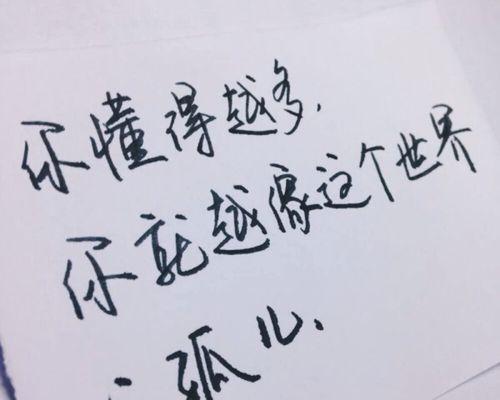 你懂得越多,
你就越像这个世界
孤儿.